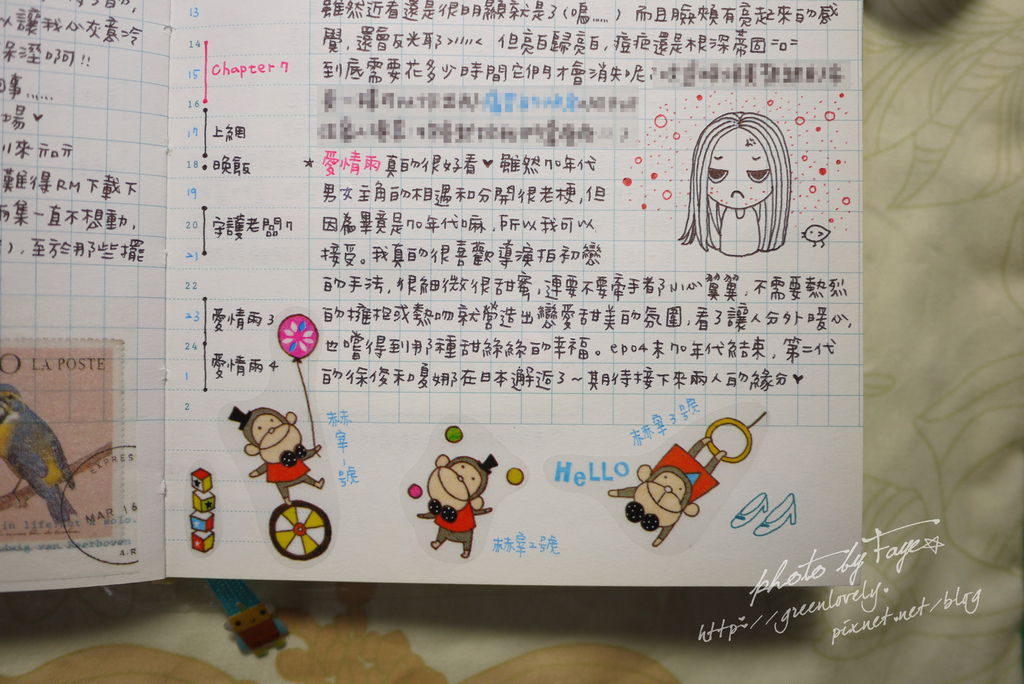 以讓我心灰意冷
呆溼啊!!
事……
場♥
難得RM下載下
集一直不想動,
),至於那些擺
O LA POSTE
EXPRES
MAR 16
in life
solo.
Ludwig van Beethoven
A.R
13
14
15
16
17
18
19
20
21
22
23
24
1
2
Chapter 7
上網
晚飯
守護老闆7
愛情雨3
愛情雨4
雖然近看還是很明顯就是了(嗚……)而且臉頰有亮起來的感
覺,還會反光耶>///< 但亮白歸亮白,痘疤還是根深蒂固=o=
到底需要花多少時間它們才會消失呢?
★愛情雨真的很好看♥雖然70年代
男女主角的相遇和分開很老梗,但
因為畢竟是70年代嘛,所以我可以
接受。我真的很喜歡導演拍初戀
的手法,很細微很甜蜜,連要不要牽手都小心翼翼,不需要熱烈
的擁抱或熱吻就營造出戀愛甜美的氛圍,看了讓人分外暖心,
也嚐得到那種甜絲絲的幸福。ep04末70年代結束,第二代
的徐俊和夏娜在日本邂逅了~期待接下來兩人的緣分♥
赫宰1號
赫宰2號
HELLO
赫宰3號
photo by Faye☆
http://greenlovely.
pixnet.net/blog